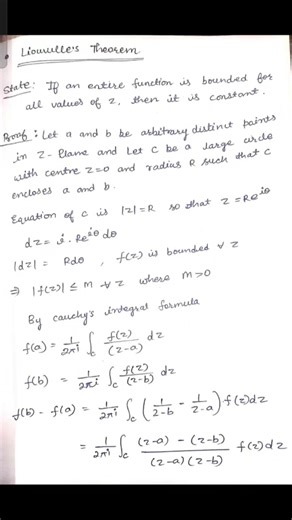 Liouville's Theorem
State: If an entire function is bounded for
all values of z, then it is constant.
Proof: Let a and b be arbitrary distinct points
in z-plane and Let C be a large circle
with centre z=0 and radius R such that C
encloses a and b.
Equation of C is |z|=R so that z=Re^{iθ}
dz = i·Re^{iθ}dθ
|dz| = Rdθ, f(z) is bounded ∀ z
⇒ |f(z)| ≤ M ∀ z where M>0
By cauchy's integral formula
f(a) = \frac{1}{2πi} ∫_c \frac{f(z)}{(z-a)} dz
f(b) = \frac{1}{2πi} ∫_c \frac{f(z)}{(z-b)} dz
f(b) - f(a) = \frac{1}{2πi} ∫_c (\frac{1}{z-b} - \frac{1}{z-a}) f(z)dz
= \frac{1}{2πi} ∫_c \frac{(z-a) - (z-b)}{(z-a)(z-b)} f(z)dz